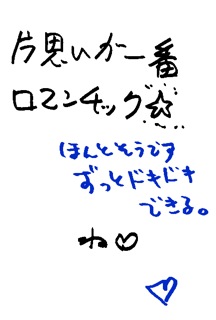 片思いが一番
ロマンチック☆
ほんとそうです
ずっとドキドキ
できる。
ね♡